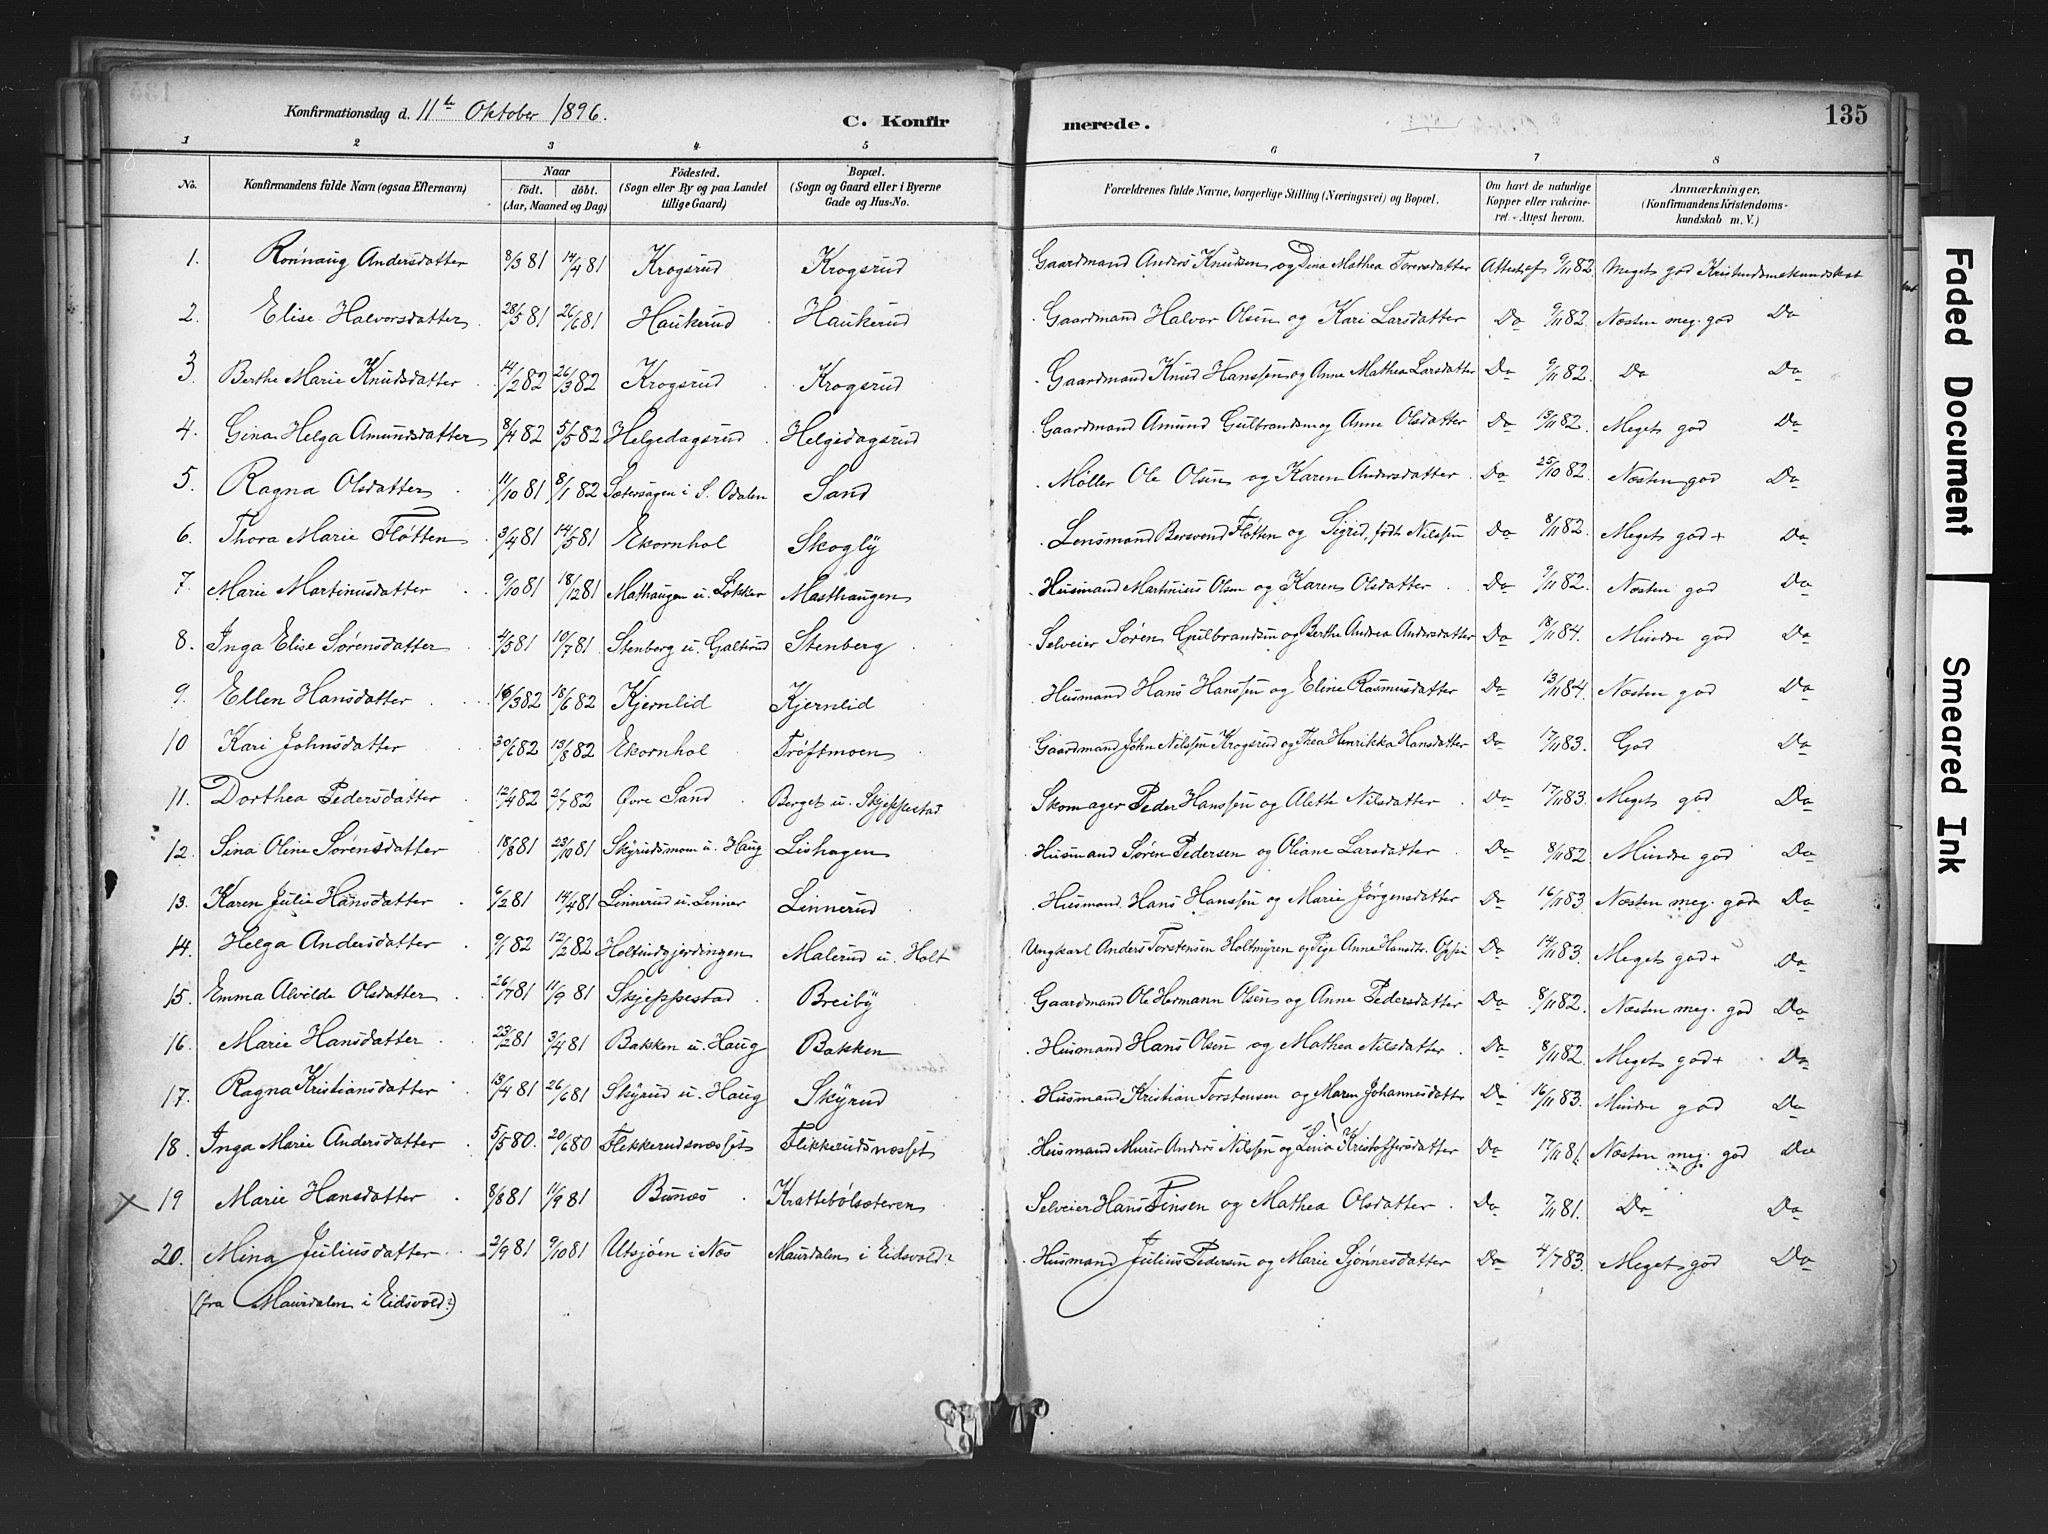 Konfirmationsdag d. 11te Oktober 1896. C. Konfirmerede. 135
1 2 3 4 5 6 7 8
No. Konfirmandens fulde Navn (ogsaa Efternavn) Naar født. døbt. (Aar, Maaned og Dag) Fødested. (Sogn eller By og paa Landet tillige Gaard) Bopæl. (Sogn og Gaard eller i Byerne Gade og Hus-No. Forældrenes fulde Navne, borgerlige Stilling (Næringsvei) og Bopæl. Om havt de naturlige Kopper eller vakcineret. - Attest herom. Anmærkninger. (Konfirmandens Kristendomskundskab m. V.)
1. Rønnaug Andersdatter 8/3 81 14/4 81 Krogsrud Krogsrud Gaardmand Anders Knutsen og Dina Mathea Torersdatter Attest af 9/11 82. Meget god Kristendomskundskab
2. Elise Halvorsdatter 28/5 81 26/6 81 Haukerud Haukerud Gaardmand Halvor Olsen og Kari Larsdatter Do 9/11 82. Næsten meg. god Do
3. Berthe Marie Knudsdatter 14/2 82 26/3 82 Krogsrud Krogsrud Gaardmand Knud Hanssen og Anne Mathea Larsdatter Do 9/11 82. Do Do
4. Gina Helga Amundsdatter 8/4 82 5/5 82 Helgedagsrud Helgedagsrud Gaardmand Amund Gulbrandsen og Anne Olsdatter Do 13/11 82. Meget god Do
5. Ragna Olsdatter 11/10 81 8/1 82 Sætersagen i S. Odalen Sand Møller Ole Olsen og Karen Andersdatter Do 25/10 82. Næsten god Do
6. Thora Marie Fløtten 3/4 81 14/5 81 Ekornhol Skogly Lensmand Bersvend Fløtten og Sigrid, født Nilssen Do 8/11 82. Meget god + Do
7. Marie Martinusdatter 9/10 81 18/12 81 Mathaugen u. Løkker Masthaugen Husmand Martinius Olsen og Karen Olsdatter Do 9/11 82. Næsten god Do
8. Inga Elise Sørensdatter 4/5 81 10/7 81 Stenberg u. Galterud Stenberg Selveier Søren Gulbrandsen og Berthe Andrea Andersdatter Do 18/11 84. Mindre god Do
9. Ellen Hansdatter 16/3 82 18/6 82 Kjernlid Kjernlid Husmand Hans Hanssen og Eline Rasmusdatter Do 13/11 84. Næsten god Do
10 Kari Johnsdatter 30/6 82 13/8 82 Ekornhol Trøftmoen Gaardmand John Nilssen Krogsrud og Thea Henrikka Hansdatter Do 17/11 83. God Do
11. Dorthea Pedersdatter 12/4 82 2/7 82 Øvre Sand Berget u. Skjeppestad Skomager Peder Hanssen og Alette Nilsdatter Do 17/11 83. Meget god Do
12. Sina Oline Sørensdatter 18/8 81 23/10 81 Skyrudsmoen u. Haug Lishagen Husmand Søren Pedersen og Oliane Larsdatter Do 8/11 82 Mindre god Do
13. Karen Julie Hansdatter 6/2 81 14/4 81 Linnerud u. Linner Linnerud Husmand Hans Hanssen og Marie Jørgensdatter Do 16/11 83. Næsten meg. god Do
14. Helga Andersdatter 9/1 82 12/2 82 Holtindgjerdingen Malerud u. Holt Ungkarl Anders Torstensen Holtmyren og Pige Anne Hansdtr. Do 14/11 83. Meget god + Do
15. Emma Alvilde Olsdatter 26/7 81 11/9 81 Skjeppestad Breiby Gaardmand Ole Hermann Olsen og Anne Pedersdatter Do 8/11 82. Næsten meg. god Do
16. Marie Hansdatter 23/2 81 3/4 81 Bakken u. Haug Bakken Husmand Hans Olsen og Mathea Nilsdatter Do 8/11 82. Meget god + Do
17. Ragna Kristiansdatter 13/4 81 26/6 81 Skyrud u. Haug Skyrud Husmand Kristian Torstensen og Maren Johannesdatter Do 16/11 83. Mindre god Do
18. Inga Marie Andersdatter 5/5 80. 20/6 80 Flekkerudsnæsset Flikkerudsnæsset Husmand Murer Anders Nilssen og Lina Kristoffersdatter Do 17/11 81. Næsten meg. god Do
x 19 Marie Hansdatter 8/8 81 11/9 81 Bunæs Krattebølsæteren Selveier Hans Finsen og Mathea Olsdatter Do 7/11 81. Do Do
20. Mina Juliusdatter 2/9 81 9/10 81 Utsjøen i Næs Maurdalen i Eidsvold Husmand Julius Pedersen og Marie Sjønnesdatter Do 4/7 83. Meget god Do
(fra Maurdalen i Eidsvold)
Faded Document
Smeared Ink